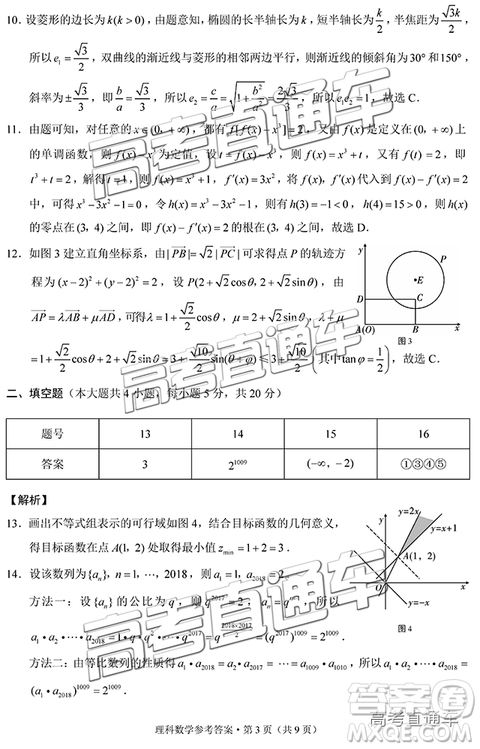 10. 设菱形的边长为k(k>0)，由题意知，椭圆的长半轴长为k，短半轴长为k/2，半焦距为√3k/2，
所以e₁=√3/2，双曲线的渐近线与菱形的相邻两边平行，则渐近线的倾斜角为30°和150°，
斜率为±√3/3，即b/a=√3/3，所以e₂=c/a=√(1+b²/a²)=2√3/3，所以e₁e₂=1，故选C．
11. 由题可知，对任意的x∈(0，+∞)，都有f[f(x)-x³]=2，又由f(x)是定义在(0，+∞)上
的单调函数，则f(x)-x³为定值，设t=f(x)-x³，则f(x)=x³+t，又又有f(t)=2，即
t³+t=2，解得t=1，则f(x)=x³+1，f′(x)=3x²，将f(x)，f′(x)代入到f(x)-f′(x)=2
中，可得x³-3x²-1=0，令h(x)=x³-3x²-1，则有h(3)=-1<0，h(4)=15>0，则h(x)
的零点在(3，4)之间，即f(x)-f′(x)=2的根在(3，4)之间，故选D．
12. 如图3建立直角坐标系，由|PB|=√2|PC|可求得点P的轨迹方
程为(x-2)²+(y-2)²=2，设P(2+√2cosθ，2+√2sinθ)，由
AP=λAB+μAD，可得λ=1+√2/2cosθ，μ=2+√2sinθ，λ+μ
=1+√2/2cosθ+2+√2sinθ=3+√10/2sin(θ+φ)≤3+√10/2(其中tanφ=1/2)，故选C．
y
P
E
D
C
A(O)
B
x
图3
二、填空题（本大题共4小题，每小题5分，共20分）
题号 13 14 15 16
答案 3 2¹⁰⁰⁹ (-∞，-2) ①③④⑤
【解析】
13. 画出不等式组表示的可行域如图4，结合目标函数的几何意义，
得目标函数在点A(1，2)处取得最小值z_min=1+2=3．
14. 设该数列为{aₙ}，n=1，⋯，2018，则a₁=1，a₂₀₁₈=2，
方法一：设{aₙ}的公比为q，则q²⁰¹⁷=2，
a₁·a₂·⋯·a₂₀₁₈=1·q·⋯·q²⁰¹⁷=q^(2018×2017/2)=2¹⁰⁰⁹．
方法二：由等比数列的性质得a₁·a₂₀₁₈=a₂·a₂₀₁₇=⋯，所以a₁·a₂·⋯·a₂₀₁₈=
(a₁·a₂₀₁₈)¹⁰⁰⁹=2¹⁰⁰⁹．
y
y=2x
y=x+1
A(1，2)
O
x
y=-x
图4
理科数学参考答案·第3页（共9页）
高考直通车
高考直通车
高考直通车
高考直通车